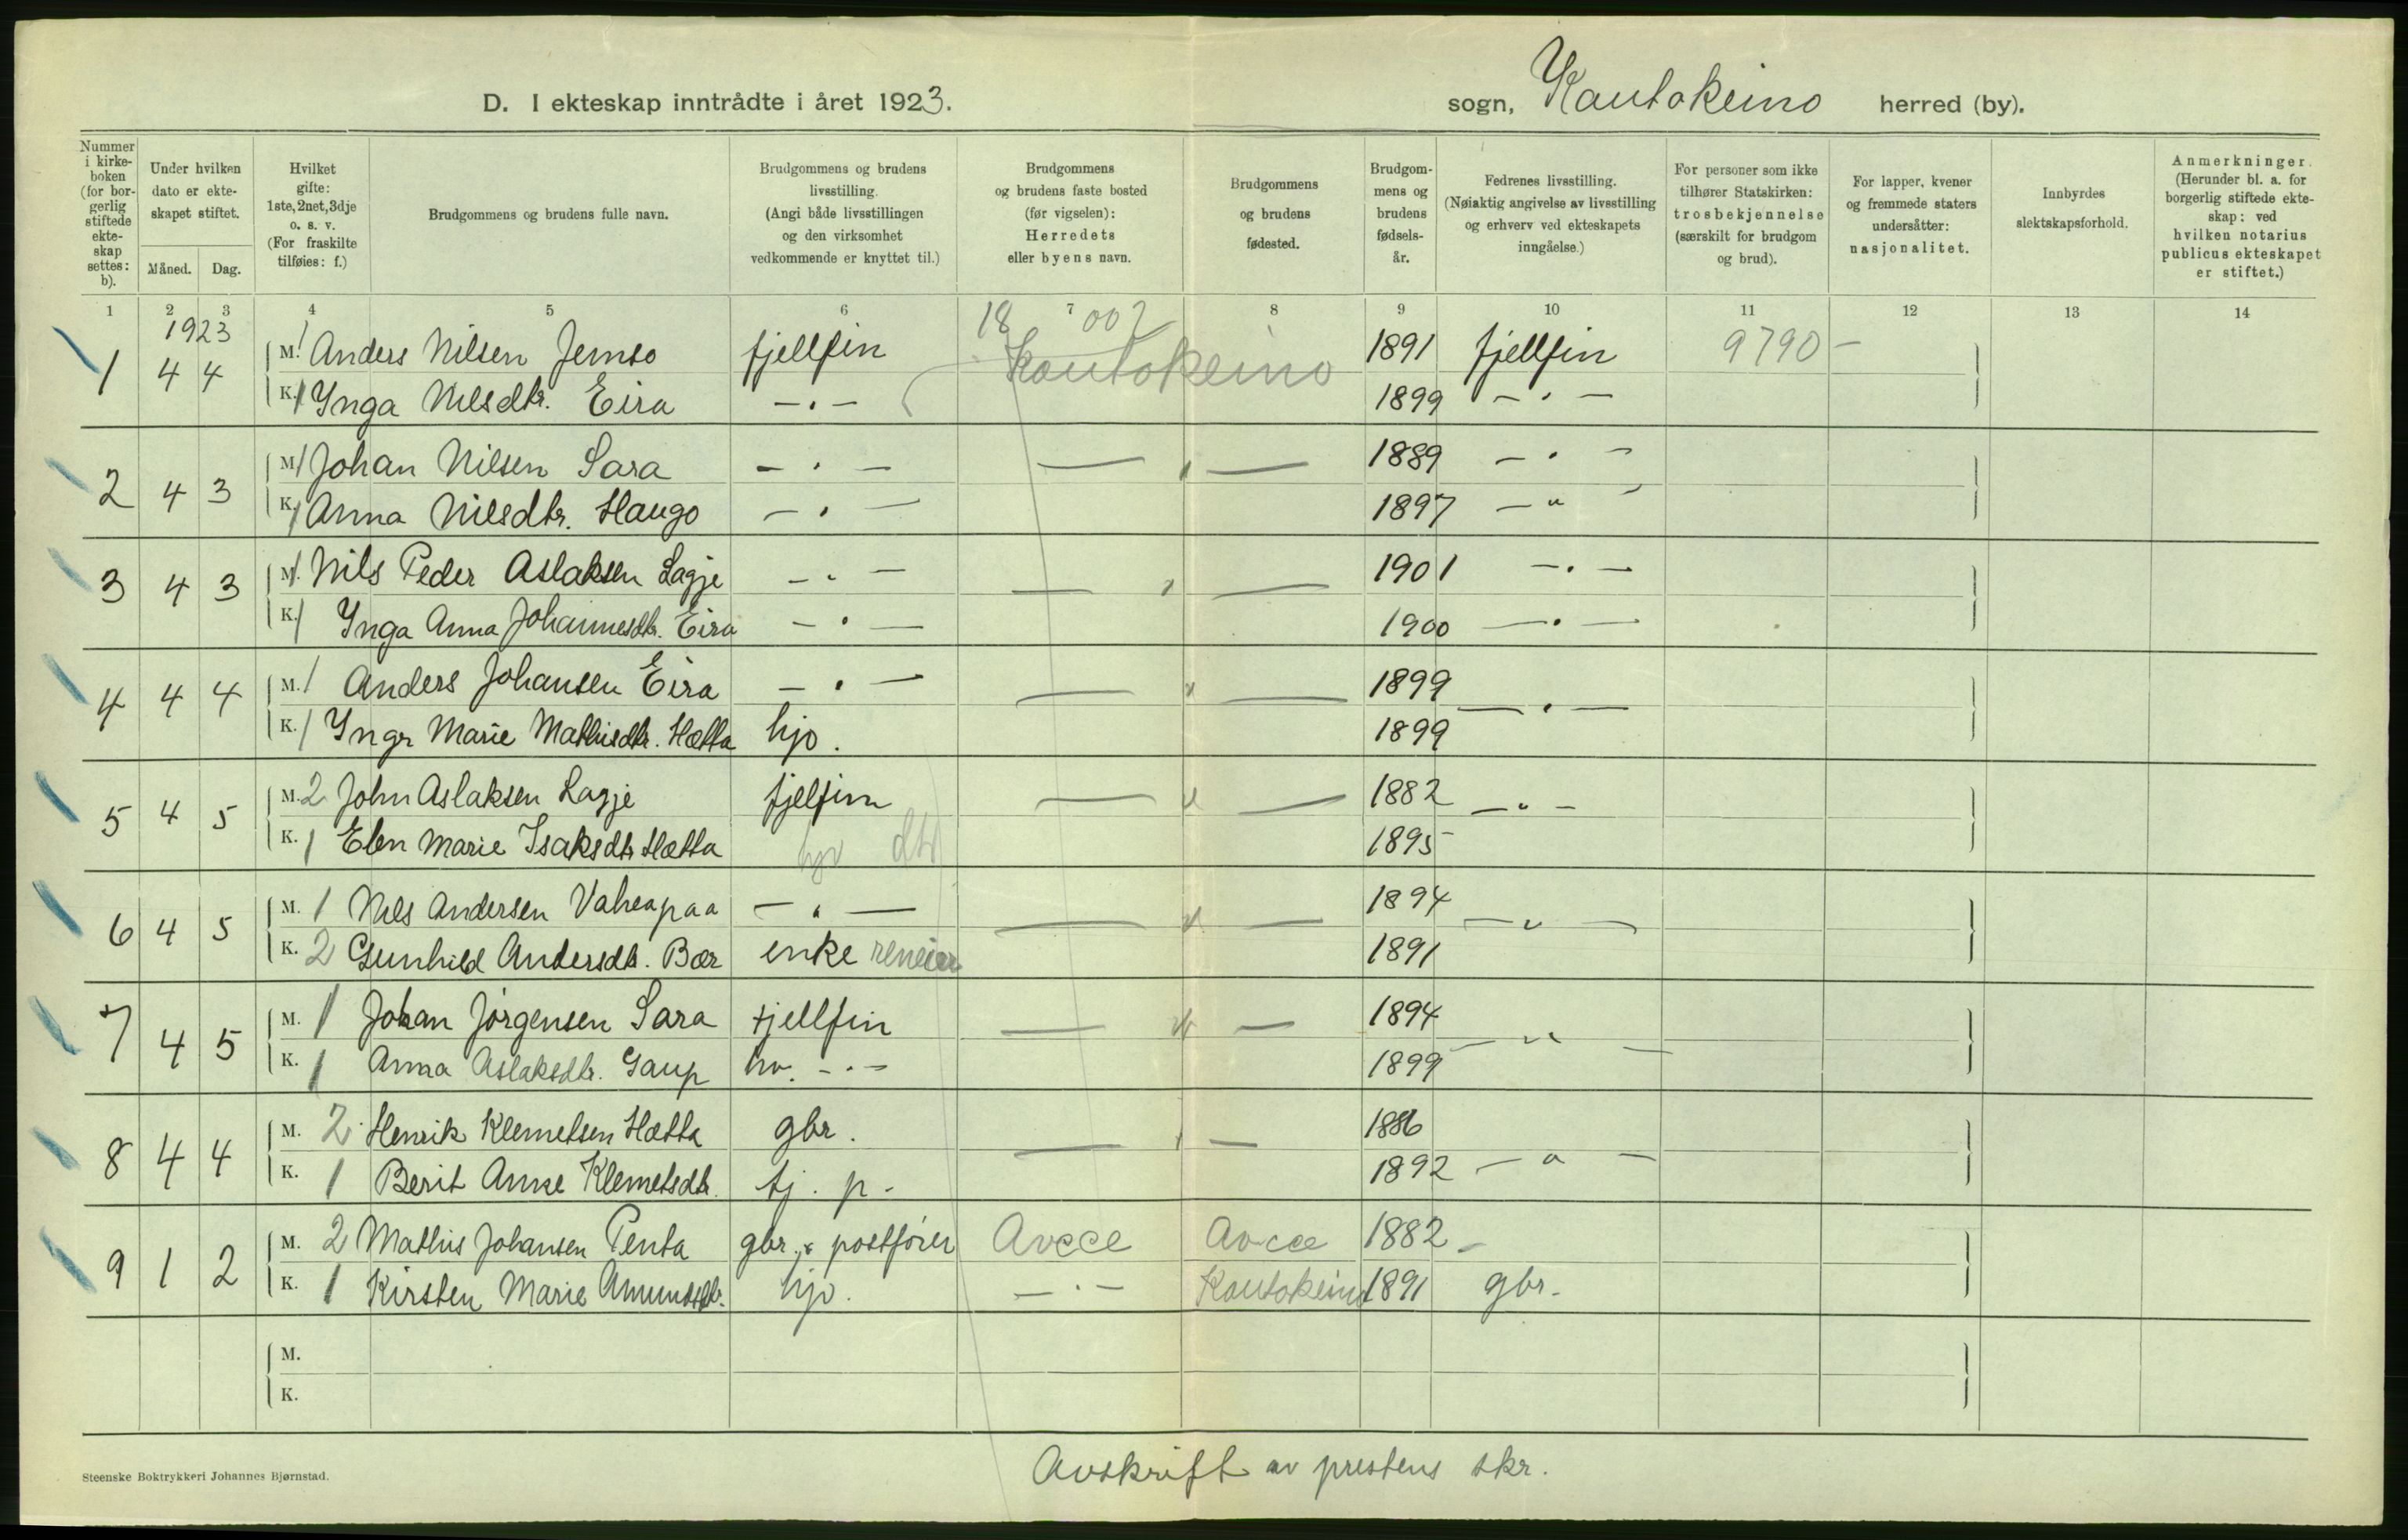 D. I ekteskap inntrådte i året 1923.
sogn, Kautokeino herred (by).
Nummer i kirke-boken (for bor-gerlig stiftede ekte-skap settes: b).
Under hvilken dato er ekte-skapet stiftet.
Måned. Dag.
Hvilket gifte: 1ste, 2net, 3dje o. s. v. (For fraskilte tilføies: f.)
Brudgommens og brudens fulle navn.
Brudgommens og brudens livsstilling. (Angi både livsstillingen og den virksomhet vedkommende er knyttet til.)
Brudgommens og brudens faste bosted (før vigselen): Herredets eller byens navn.
Brudgommens og brudens fødested.
Brudgom-mens og brudens fødsels-år.
Fedrenes livsstilling. (Nøiaktig angivelse av livsstilling og erhverv ved ekteskapets inngåelse.)
For personer som ikke tilhører Statskirken: trosbekjennelse (særskilt for brudgom og brud).
For lapper, kvener og fremmede staters undersåtter: nasjonalitet.
Innbyrdes slektskapsforhold.
Anmerkninger. (Herunder bl. a. for borgerlig stiftede ekte-skap: ved hvilken notarius publicus ekteskapet er stiftet.)
1 2 3 4 5 6 7 8 9 10 11 12 13 14
1923 18 002
1 4 4 M. 1 Anders Nilsen Jemso fjellfin Kautokeino 1891 fjellfin 9790 -
K. 1 Ynga Nilsdtr. Eira - " - 1899 - " -
2 4 3 M. 1 Johan Nilsen Sara - " - — " — 1889 - " -
K. 1 Anna Nilsdtr. Haugo - " - 1897 - " -
3 4 3 M. 1 Nils Peder Aslaksen Lagje - " - — " — 1901 - " -
K. 1 Ynga Anna Johannesdtr. Eira - " - 1900 - " -
4 4 4 M. 1 Anders Johansen Eira - " - — " — 1899 - " -
K. 1 Yngr Marie Mathisdtr. Hætta hjv. 1899
5 4 5 M. 2 John Aslaksen Lagje fjelfin — " — 1882 - " -
K. 1 Elen Marie Isaksdtr Hætta hjv dtr 1895
6 4 5 M. 1 Nils Andersen Vaheapaa - " - — " — 1894 - " -
K. 2 Gunhild Andersdtr. Bær enke reneier 1891
7 4 5 M. 1 Johan Jörgensen Sara fjellfin — " — 1894 - " -
K. 1 Anna Aslaksdtr. Gaup hv. - " - 1899
8 4 4 M. 2 Henrik Klemetsen Hætta gbr. — " — 1886
K. 1 Berit Anne Klemetsdtr. tj. p. 1892 - " -
9 1 2 M. 2 Mathis Johansen Penta gbr. & postfører Avcce Avcce 1882 -
K. 1 Kirsten Marie Amundsdtr. hjv. - " - Kautokeino 1891 gbr.
M.
K.
Avskrift av prestens skr.
Steenske Boktrykkeri Johannes Bjørnstad.